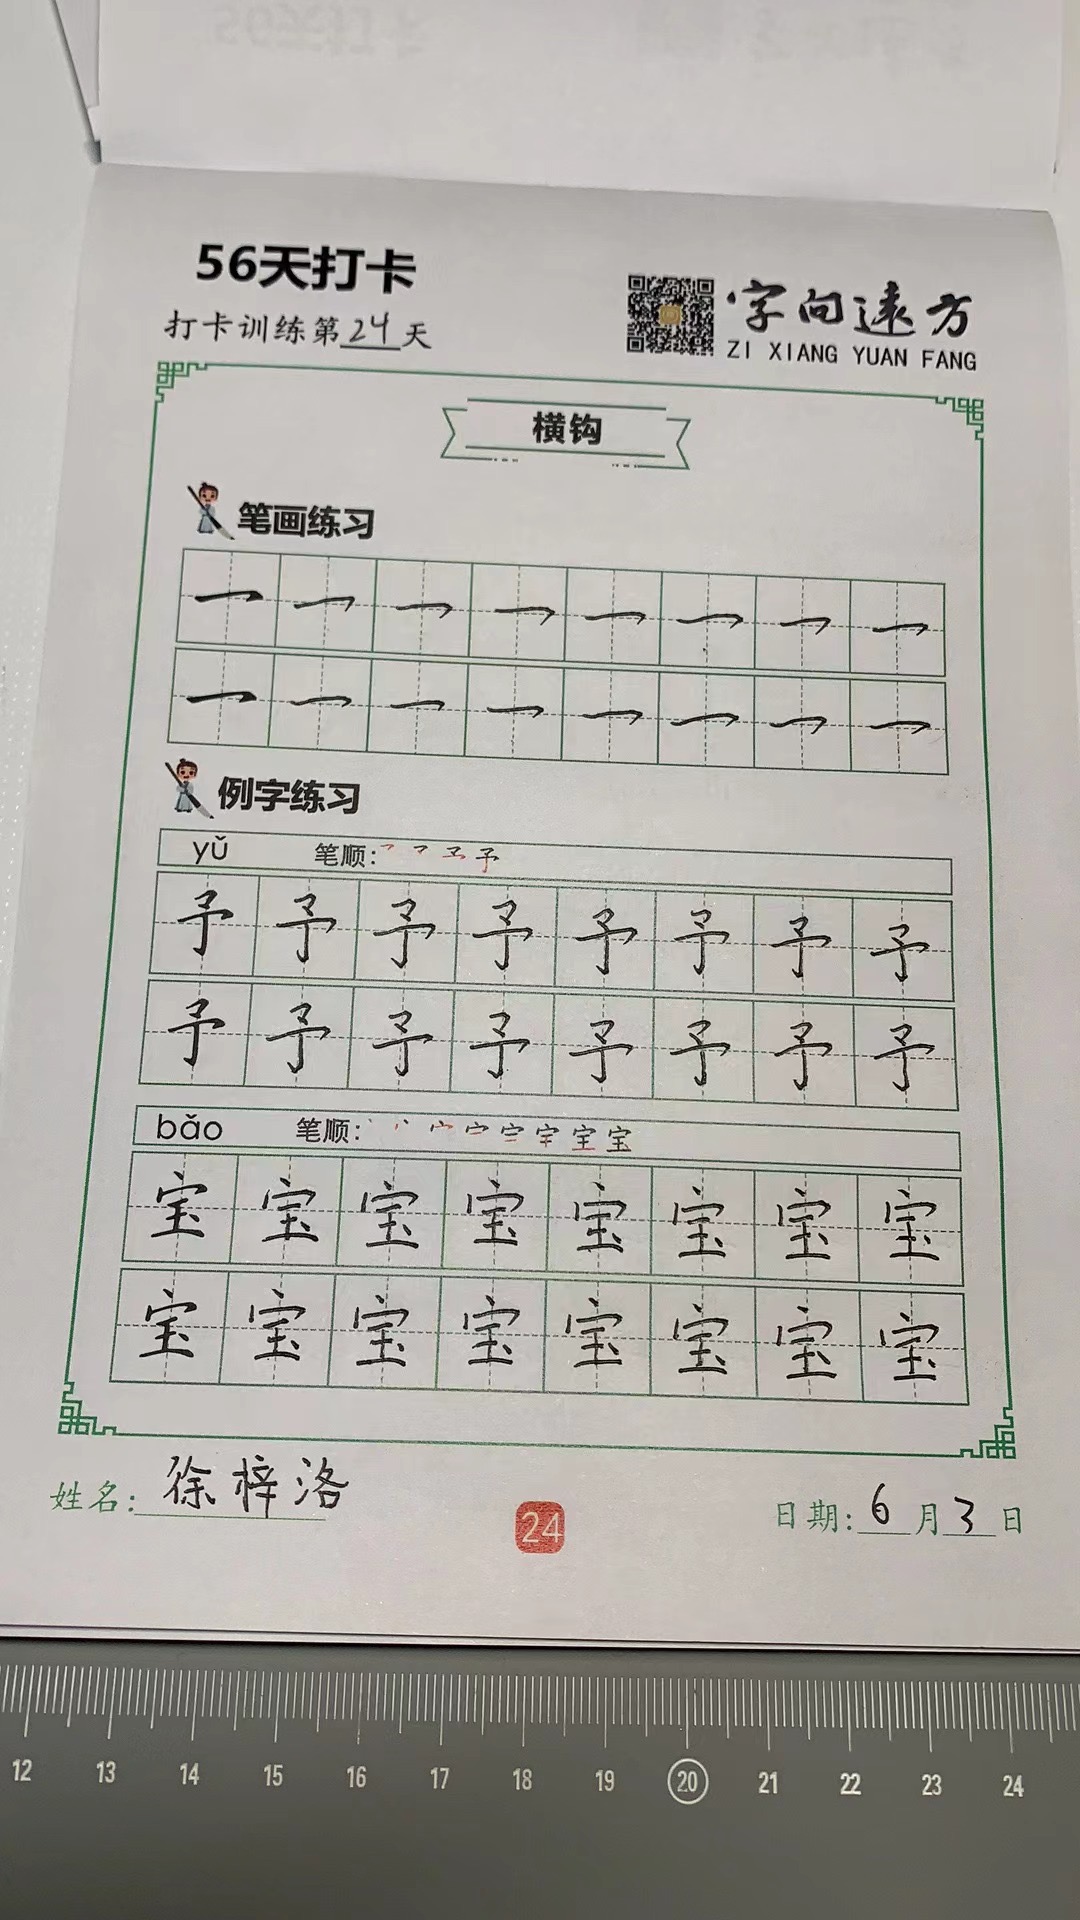 56天打卡
打卡训练第24天
字向远方
ZI XIANG YUAN FANG
横钩
笔画练习
㇖ ㇖ ㇖ ㇖ ㇖ ㇖ ㇖ ㇖
㇖ ㇖ ㇖ ㇖ ㇖ ㇖ ㇖ ㇖
例字练习
yǔ 笔顺:
予 予 予 予 予 予 予 予
予 予 予 予 予 予 予 予
bǎo 笔顺:
宝 宝 宝 宝 宝 宝 宝 宝
宝 宝 宝 宝 宝 宝 宝 宝
姓名:徐梓洛
24
日期:6月3日
12 13 14 15 16 17 18 19 20 21 22 23 24